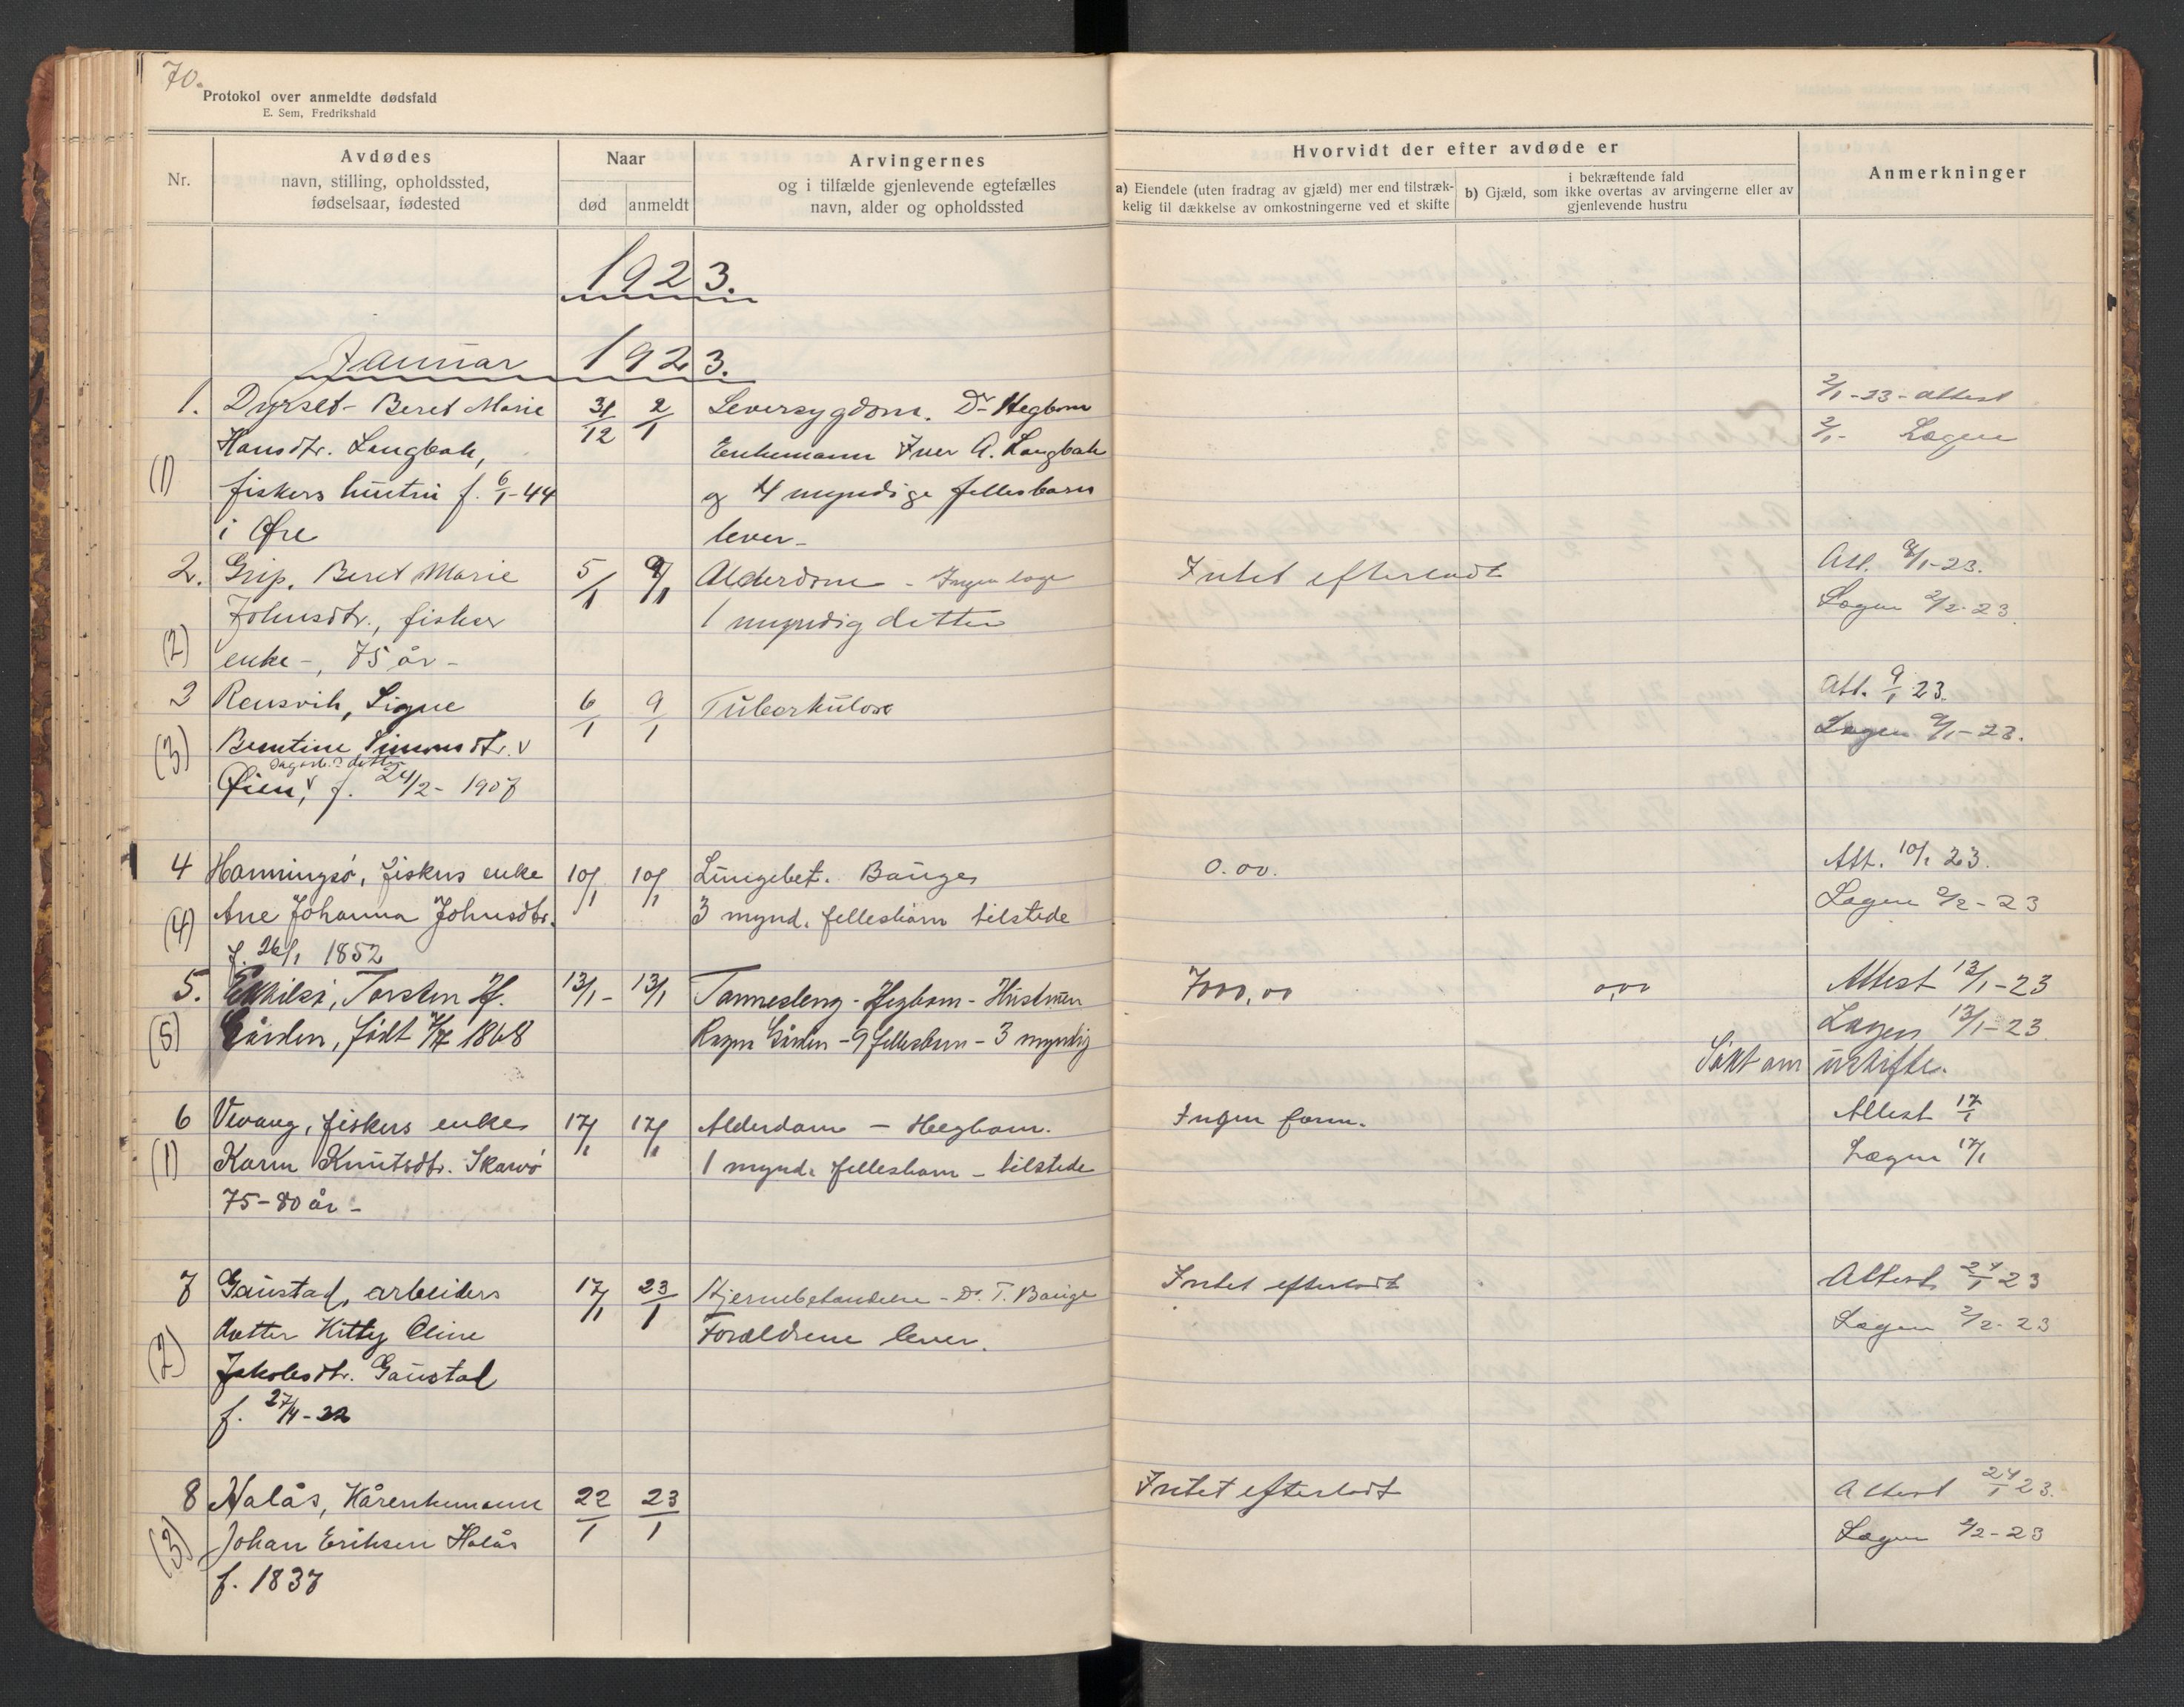 70.
Protokol over anmeldte dødsfald
E. Sem, Fredrikshald
Nr.
Avdødes
navn, stilling, opholdssted,
fødselsaar, fødested
Naar
død
anmeldt
Arvingernes
og i tilfælde gjenlevende egtefælles
navn, alder og opholdssted
Hvorvidt der efter avdøde er
a) Eiendele (uten fradrag av gjæld) mer end tilstræk-
kelig til dækkelse av omkostningerne ved et skifte
i bekræftende fald
b) Gjæld, som ikke overtas av arvingerne eller av
gjenlevende hustru
Anmerkninger
1923.
Januar 1923.
1. Dyrset - Beret Marie 31/12 2/1 Leversygdom. Dr Hegbom 2/1-23 - attest
Hansdtr. Langbak, Enkemann Iver A. Langbak 2/1- Lagen
(1) fiskers hustru f. 6/1-44 og 4 myndige fellesbarn
i Øre lever -
2. Grip, Beret Marie 5/1 9/1 Alderdom - Ingen læge Intet efterladt Att. 9/1-23.
Johnsdtr., fisker 1 myndig datter Lagen 2/2-23.
(2) enke -, 75 år -
3 Rensvik, Signe 6/1 9/1 Tuberkulose Att. 9/1 23.
(3) Berntine Simonsdtr. v Lagen 9/1-23.
datter
Øien, v f. 24/2-1907
4 Hanningsø, fiskers enke 10/1 10/1 Lungebet. Bauge 0.00. Att. 10/1 23.
(4) Ane Johanna Johnsdtr. 3 mynd. fellesbarn tilstede Lagen 2/2-23
f. 26/1 1852
5. Torsten H. 13/1- 13/1 Hegbom - Hustruen 7000,00 0,00 Attest 13/1-23
(5) Gården, født 1868 Gården - 9 fellesbarn - 3 myndig Lagen 13/1-23
Søkt om uskifte.
6 Vevang, fiskers enke 17/1 17/1 Alderdom - Hegbom. Ingen form. Attest 17/1
(1) Karen Knutsdtr. Skarvø 1 mynd. fellesbarn - tilstede Lægen 17/1
75-80 år -
7 Gaustad, arbeiders 17/1 23/1 Hjernebetændelse - Dr. T. Bauge Intet efterladt Attest 24/1 23
datter Kitty Oline Forældrene lever. Lagen 2/2-23
(2) Jakobsdtr. Gaustad
f. 27/4-22
8 Halås, Kårenkemann 22/1 23/1 Intet efterladt Attest 24/1 23.
(3) Johan Eriksen Halås Lagen 2/2-23
f. 1837